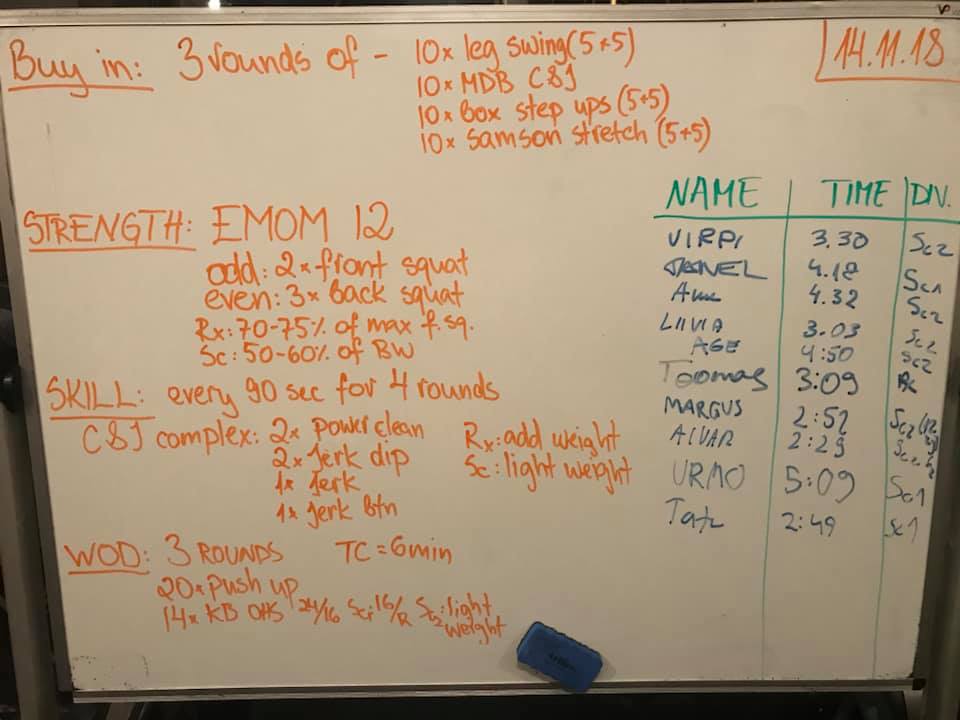 Buy in: 3 rounds of - 10x leg swing (5+5)
10x MDB C&J
10x box step ups (5+5)
10x samson stretch (5+5)
14.11.18
STRENGTH: EMOM 12
odd: 2x front squat
even: 3x back squat
Rx: 70-75% of max f.sq.
Sc: 50-60% of BW
SKILL: every 90 sec for 4 rounds
C&J complex: 2x power clean
2x jerk dip
1x jerk
1x jerk btn
Rx: add weight
Sc: light weight
WOD: 3 ROUNDS TC=6min
20x push up
14x KB OHS 24/16 Sc1: 16/12 Sc2: light
weight
NAME TIME DIV.
VIRPI 3.30 Sc2
JANEL 4.18 Sc1
4.32 Sc2
LIIVIA 3.03 Sc2
AGE 4:50 Sc2
Toomas 3:09 Rx
MARGUS 2:52 Sc2
AIVAR 2:29 Sc2
URMO 5:09 Sc1
2:49 Sc1